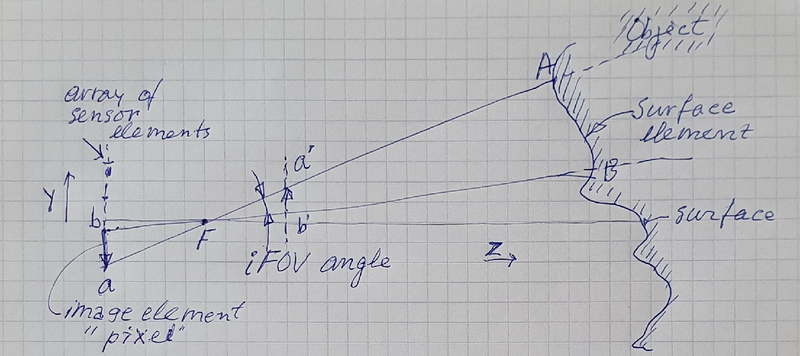 Object
A
array of
sensor
elements
surface
element
a'
B
Y
b
b'
surface
F
Z
iFOV angle
a
image element
"pixel"